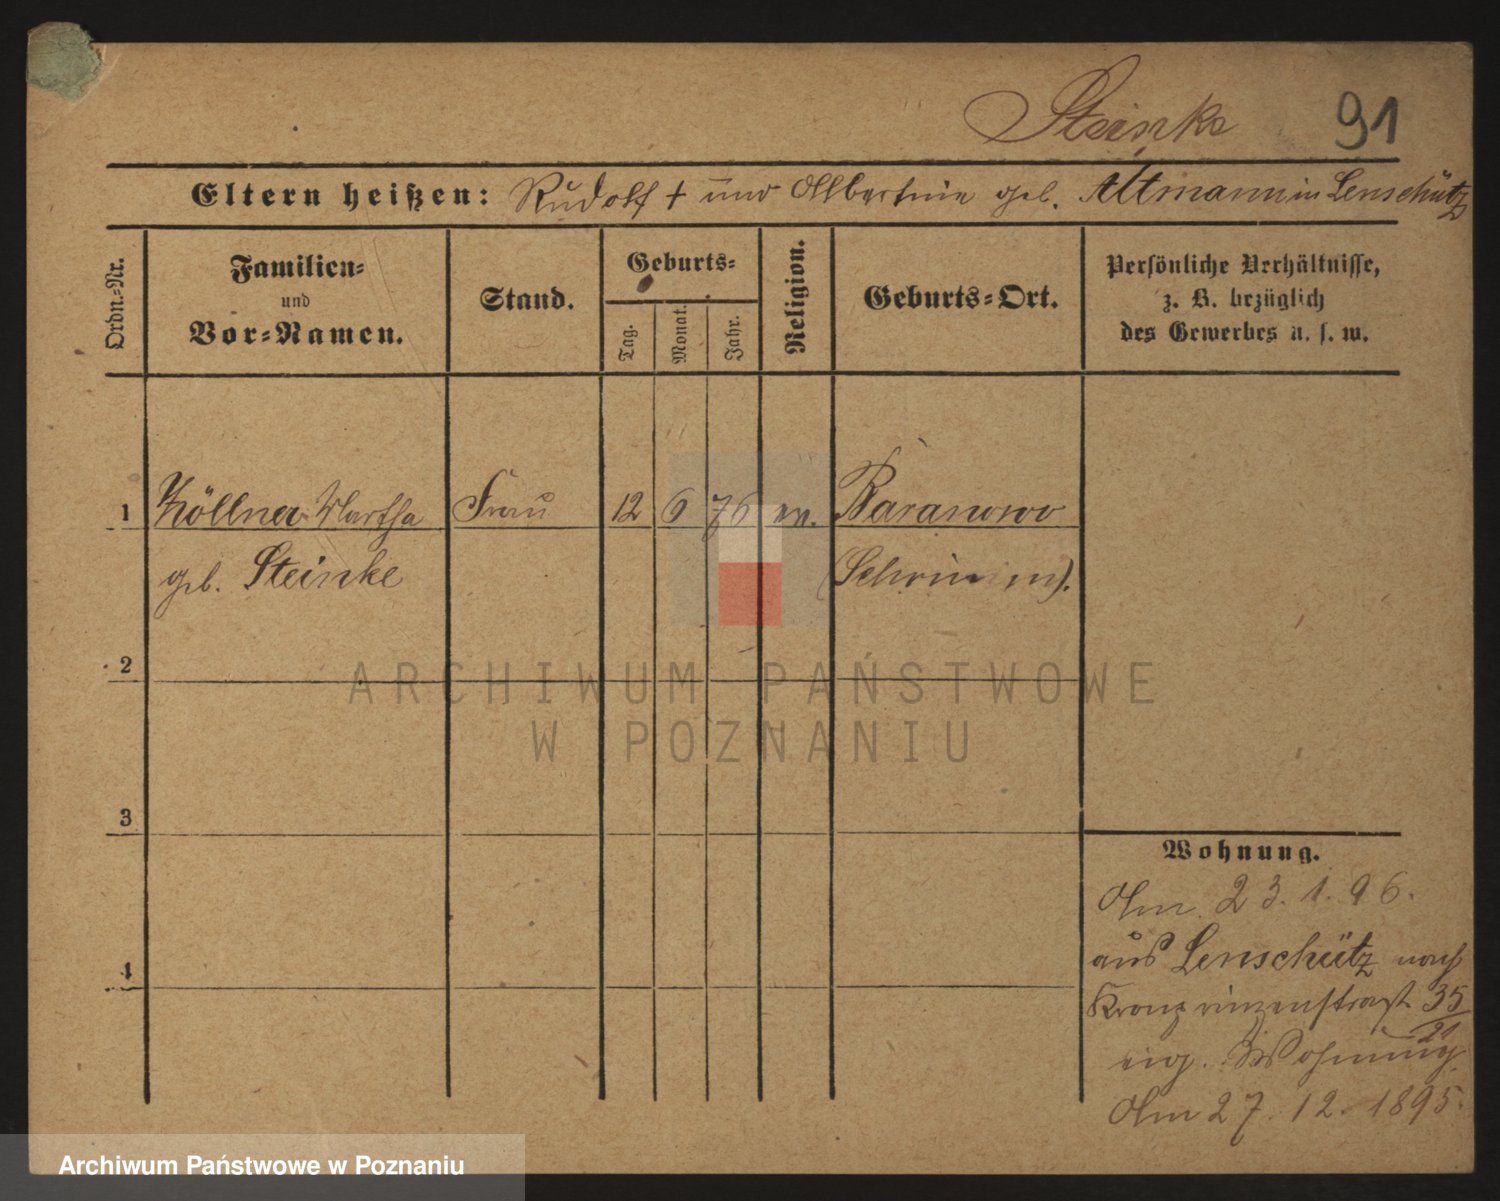 Steinke 91
Eltern heißen: Rudolf † und Albertine geb. Altmann in Lenschütz
Ordn.-Nr.
Familien-
und
Vor-Namen.
Stand.
Geburts-
Tag.
Monat.
Jahr.
Religion.
Geburts-Ort.
Persönliche Verhältnisse,
z. B. bezüglich
des Gewerbes u. s. w.
1 Köllner Martha Frau 12 6 76 ev. Baranowo
geb. Steinke (Schrimm).
2
ARCHIWUM PAŃSTWOWE
W POZNANIU
3
Wohnung.
Am 23.1.96.
aus Lenschütz nach
4
Kronprinzenstraße 35
21
eig. Wohnung
Am 27.12.1895.
Archiwum Państwowe w Poznaniu